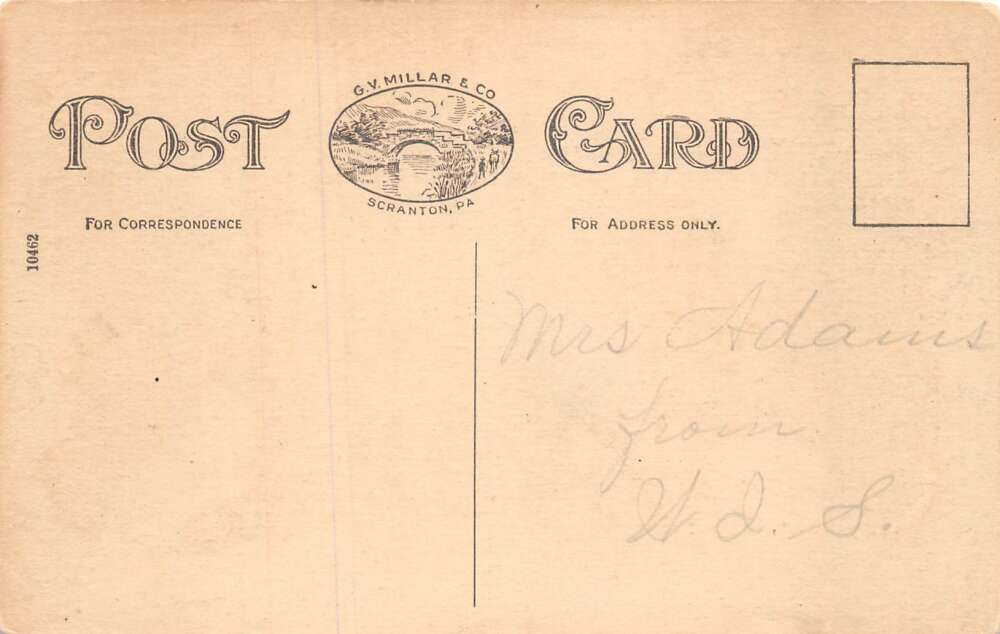 G.V. MILLAR & CO
POST CARD
SCRANTON, PA
FOR CORRESPONDENCE
FOR ADDRESS ONLY.
10462
Mrs Adams
from
W. I. S.